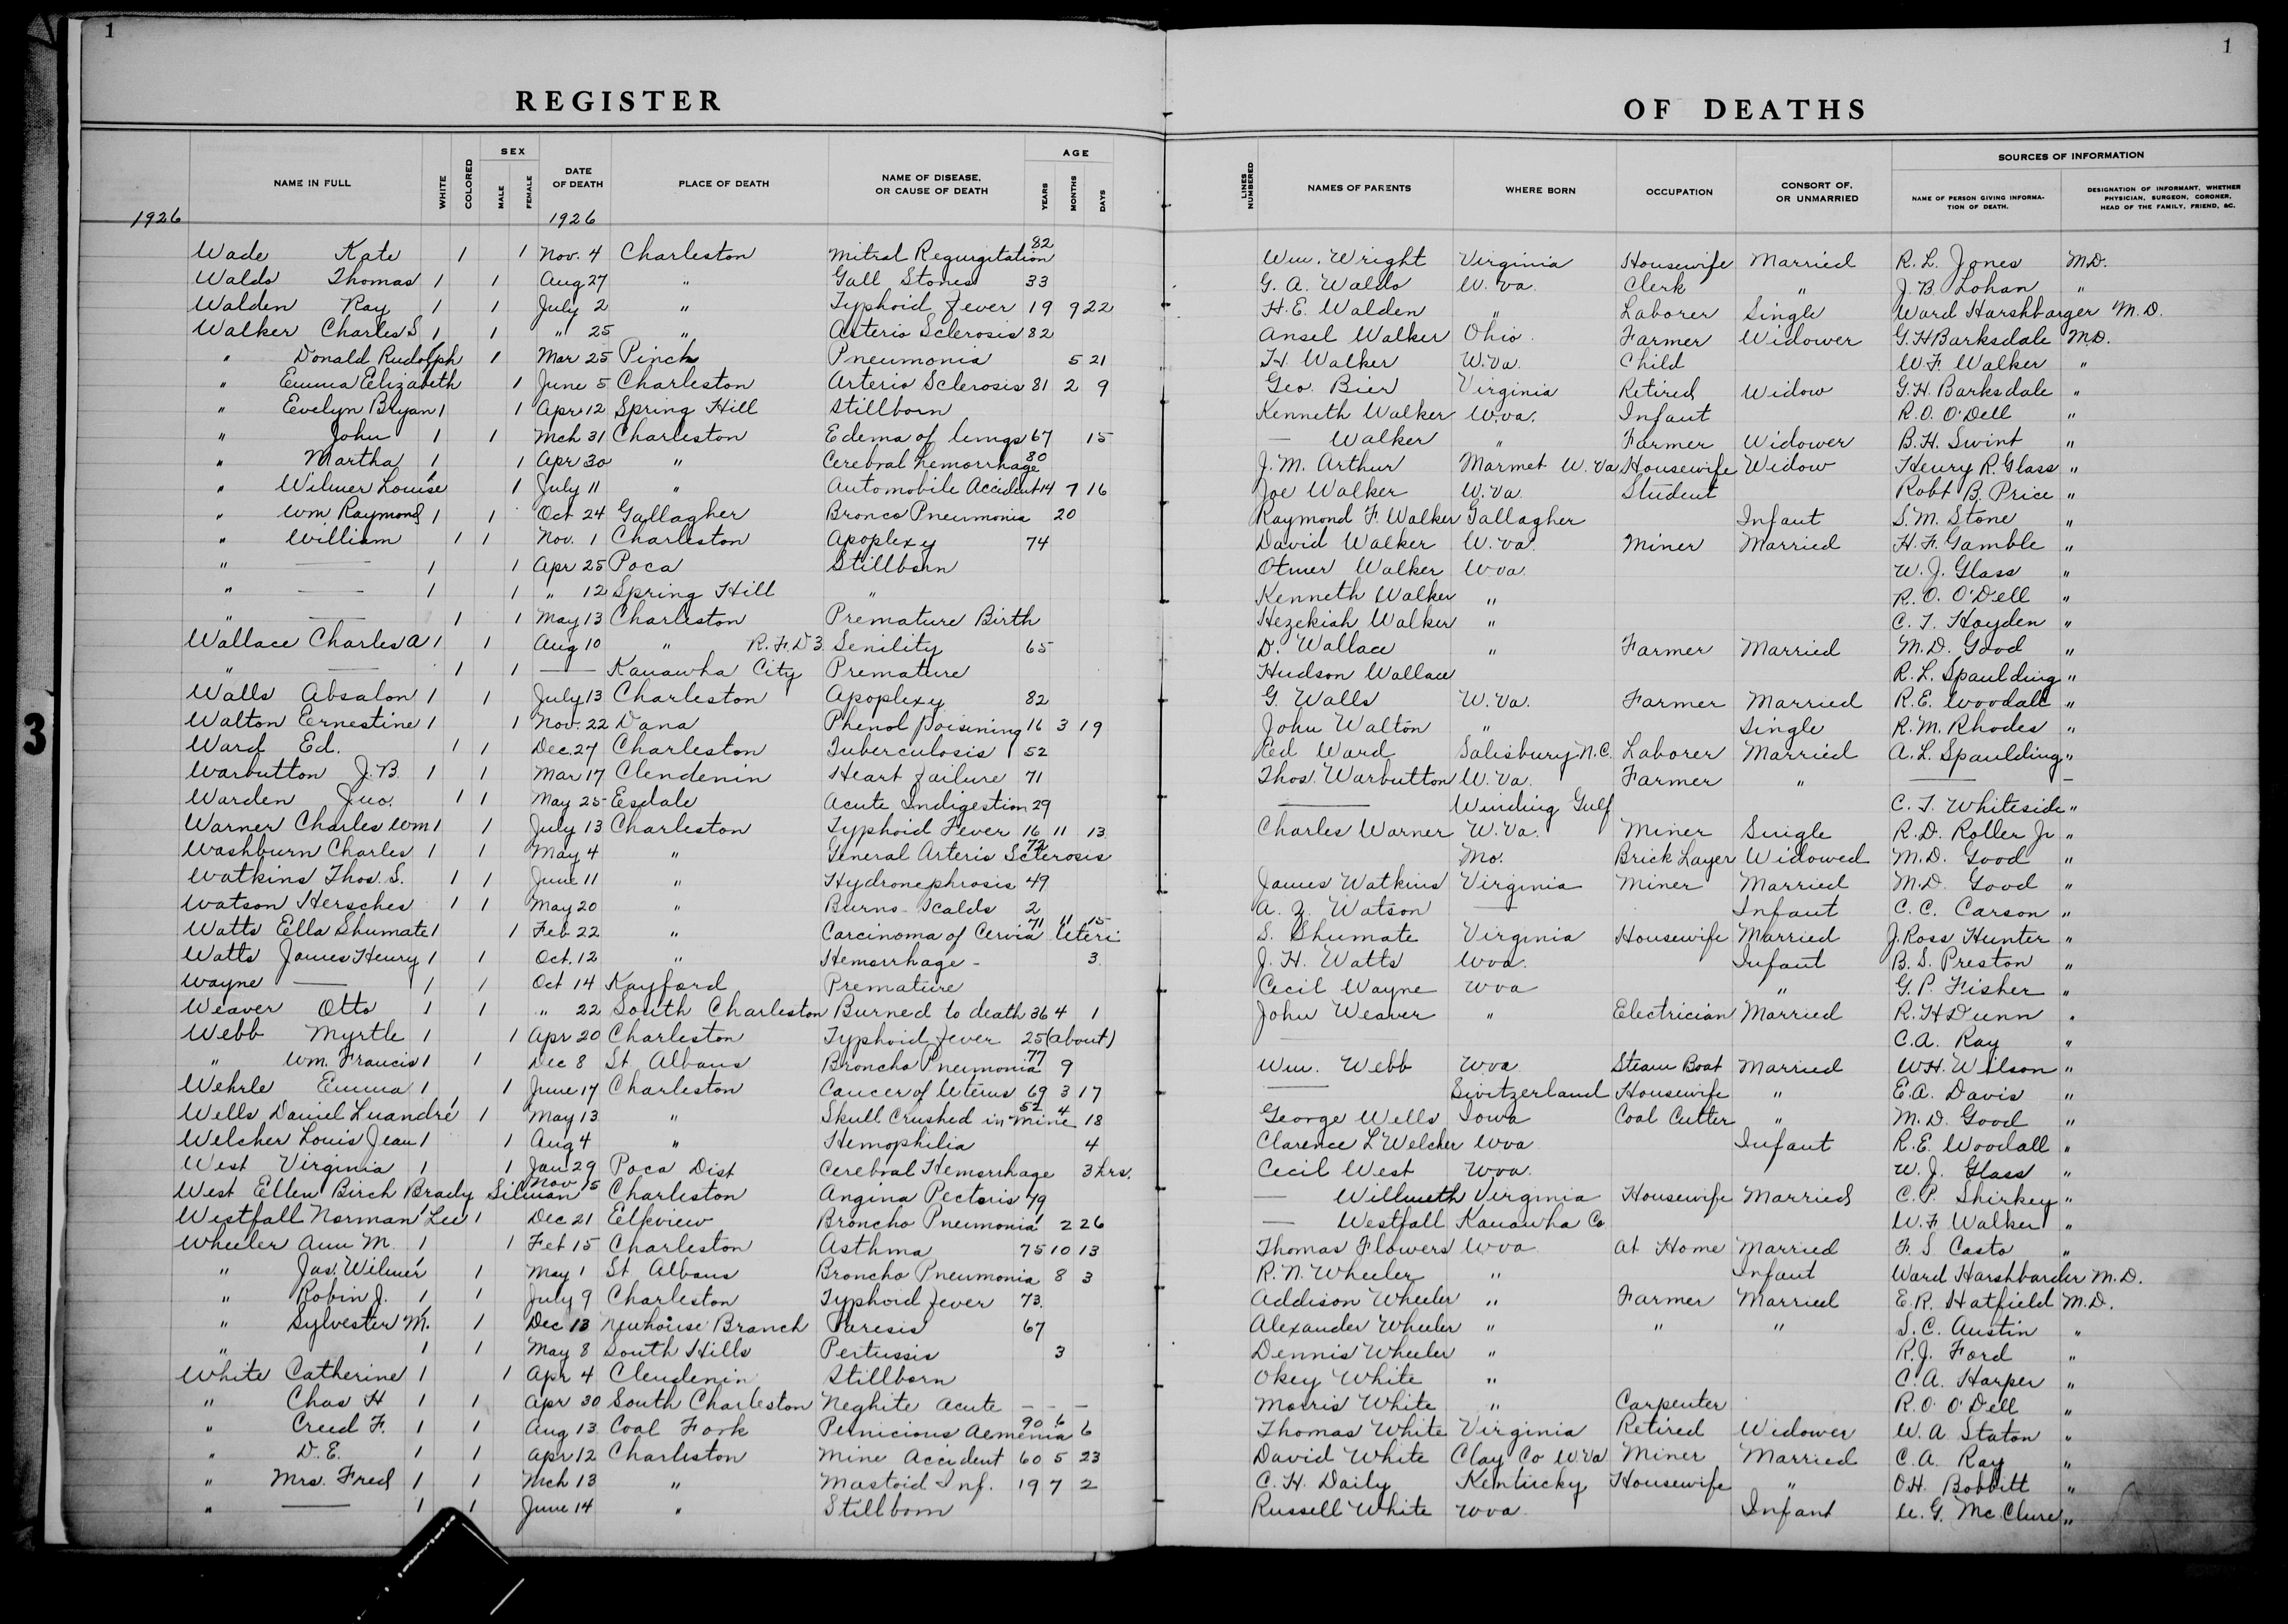 1
1
REGISTER
OF DEATHS
NAME IN FULL WHITE COLORED SEX MALE FEMALE DATE OF DEATH PLACE OF DEATH NAME OF DISEASE, OR CAUSE OF DEATH AGE YEARS MONTHS DAYS
LINES NUMBERED NAMES OF PARENTS WHERE BORN OCCUPATION CONSORT OF, OR UNMARRIED SOURCES OF INFORMATION NAME OF PERSON GIVING INFORMATION OF DEATH. DESIGNATION OF INFORMANT, WHETHER PHYSICIAN, SURGEON, CORONER, HEAD OF THE FAMILY, FRIEND, &C.
1926 1926
Wade Kate 1 1 Nov. 4 Charleston Mitral Regurgitation 82 Wm. Wright Virginia Housewife Married R. L. Jones M.D.
Waldo Thomas 1 1 Aug 27 " Gall Stones 33 G. A. Waldo W. Va. Clerk " J. B. Lohan "
Walden Ray 1 1 July 2 " Typhoid Fever 19 9 22 H. E. Walden " Laborer Single Ward Harshbarger M.D.
Walker Charles S. 1 1 " 25 " Asterio Sclerosis 82 Ansel Walker Ohio Farmer Widower G. H Barksdale M.D.
" Donald Rudolph 1 1 Mar 25 Pinch Pneumonia 5 21 Walker W.Va. Child W. F. Walker "
" Emma Elizabeth 1 June 5 Charleston Arterio Sclerosis 81 2 9 Geo. Brier Virginia Retired Widow G. H. Barksdale "
" Evelyn Bryan 1 1 Apr 12 Spring Hill Stillborn Kenneth Walker W.Va. Infant R. O. O'Dell "
" John 1 1 Mch 31 Charleston Edema of lungs 67 15 — Walker " Farmer Widower B. H. Swint "
" Martha 1 1 Apr 30 " Cerebral hemorrhage 80 J. M. Arthur Marmet W. Va Housewife Widow Henry R. Glass "
" Wilmer Louise 1 1 July 11 " Automobile Accident 14 7 16 Joe Walker W.Va. Student Robt B. Price "
" Wm Raymond 1 1 Oct 24 Gallagher Bronco Pneumonia 20 Raymond F. Walker Gallagher Infant S. M. Stone "
" William 1 1 Nov. 1 Charleston Apoplexy 74 David Walker W. Va. Miner Married H. F. Gamble "
" — 1 1 Apr 25 Poca Stillborn Otmer Walker W Va. W. J. Glass "
" — 1 1 " 12 Spring Hill " Kenneth Walker " R. O. O'Dell "
" — 1 1 May 13 Charleston Premature Birth Hezekiah Walker " C. T. Hayden "
Wallace Charles A 1 1 Aug 10 " R.F.D 3 Senility 65 D. Wallace " Farmer Married M. D. Good "
" — 1 1 — Kanawha City Premature Hudson Wallace R. L. Spaulding "
Walls Absalon 1 1 July 13 Charleston Apoplexy 82 G. Walls W. Va. Farmer Married R. E. Woodall "
Walton Ernestine 1 1 Nov. 22 Dana Phenol poisining 16 3 19 John Walton " Single R. M. Rhodes "
Ward Ed. 1 1 Dec. 27 Charleston Tuberculosis 52 Ward Salisbury N.C. Laborer Married A. L. Spaulding "
Warbutton J.B. 1 1 Mar 17 Clendenin Heart failure 71 Thos. Warbutton W. Va. Farmer " — –
Warden Jno. 1 1 May 25 Esdale Acute Indigestion 29 — Winding Gulf C. T. Whiteside "
Warner Charles Wm 1 1 July 13 Charleston Typhoid Fever 16 11 13 Charles Warner W. Va. Miner Single R. D. Roller Jr "
Washburn Charles 1 1 May 4 " General Arterio Sclerosis 72 Mo. Brick Layer Widowed M. D. Good "
Watkins Thos. S. 1 1 June 11 " Hydronephrosis 49 James Watkins Virginia Miner Married M.D. Good "
Watson Hersches 1 1 May 20 " Burns-Scalds 2 A. Z. Watson — Infant C. C. Carson "
Watts Ella Shumate 1 1 Feb 22 " Carcinoma of Cervia Uteri 71 11 15 S. Shumate Virginia Housewife Married J. Ross Hunter "
Watts James Henry 1 1 Oct. 12 " Hemorrhage - 3 J. H. Watts W Va. Infant B. S. Preston "
Wayne — 1 1 Oct 14 Kayford Premature Cecil Wayne W Va " G. P. Fisher "
Weaver Otto 1 1 " 22 South Charleston Burned to death 36 4 1 John Weaver " Electrician Married R. H Dunn "
Webb Myrtle 1 1 Apr 20 Charleston Typhoid fever 25 (about) — C. A. Ray "
" Wm. Francis 1 1 Dec 8 St Albans Broncho Pneumonia 77 9 Wm. Webb W Va. Steam Boat Married W.H. Wilson "
Wehrle Emma 1 1 June 17 Charleston Cancer of Uterus 69 3 17 — Switzerland Housewife " E. A. Davis "
Wells Daniel Luandré 1 1 May 13 " Skull Crushed in mine 52 4 18 George Wells Iowa Coal Cutter " M. D. Good "
Welcher Louis Jean 1 1 Aug 4 " Hemophilia 4 Clarence L Welcher W Va Infant R. E. Woodall "
West Virginia 1 1 Jan 29 Poca Dist Cerebral Hemorrhage 3 hrs. Cecil West W Va. W. J. Glass "
West Ellen Birch Brady Silman Nov 15 Charleston Angina Pectoris 49 — Willmeth Virginia Housewife Married C. P. Shirkey "
Westfall Norman Lee 1 1 Dec 21 Elkview Broncho Pneumonia 2 26 — Westfall Kanawha Co W. F. Walker "
Wheeler Ann M. 1 1 Feb 15 Charleston Asthma 75 10 13 Thomas Flowers W Va At Home Married F. S. Casto "
" Jas. Wilmer 1 1 May 1 St. Albans Broncho Pneumonia 8 3 R. N. Wheeler " Infant Ward Harshbarder M.D.
" Robin J. 1 1 July 9 Charleston Typhoid fever 73. Addison Wheeler " Farmer Married E. R. Hatfield M.D.
" Sylvester M. 1 1 Dec 13 Newhouse Branch Paresis 67 Alexander Wheeler " " " S. C. Austin "
" 1 1 May 8 South Hills Pertussis 3 Dennis Wheeler " R. J. Ford "
White Catherine 1 1 Apr 4 Clendenin Stillborn Okey White " C. A. Harper "
" Chas H 1 1 Apr 30 South Charleston Neghite Acute – – – Morris White " Carpenter R. O. O'Dell "
" Creed F. 1 1 Aug 13 Coal Fork Pernicious Aemenia 90 6 6 Thomas White Virginia Retired Widower W. A Staton "
" D. E. 1 1 Apr 12 Charleston Mine Accident 60 5 23 David White Clay Co W.Va Miner Married C. A. Ray "
" Mrs. Fred 1 1 Mch 13 " Mastoid Inf. 19 7 2 C. H. Daily Kentucky Housewife " O.H. Bobbitt "
" — 1 1 June 14 " Stillborn Russell White W Va. Infant U. G. McClure "
3